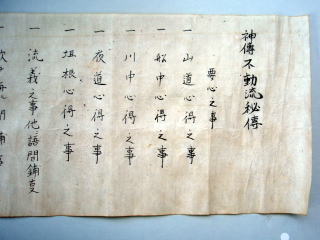 神傳不動流秘傳
要心之事
一 山道心得之事
一 船中心得之事
一 川中心得之事
一 夜道心得之事
一 垣根心得之事
一 流義之事他語間鋪